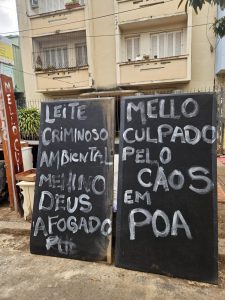 LEITE
CRIMINOSO
AMBIENTAL
MENINO
DEUS
AFOGADO
MELLO
CULPADO
PELO
CAOS
EM
POA